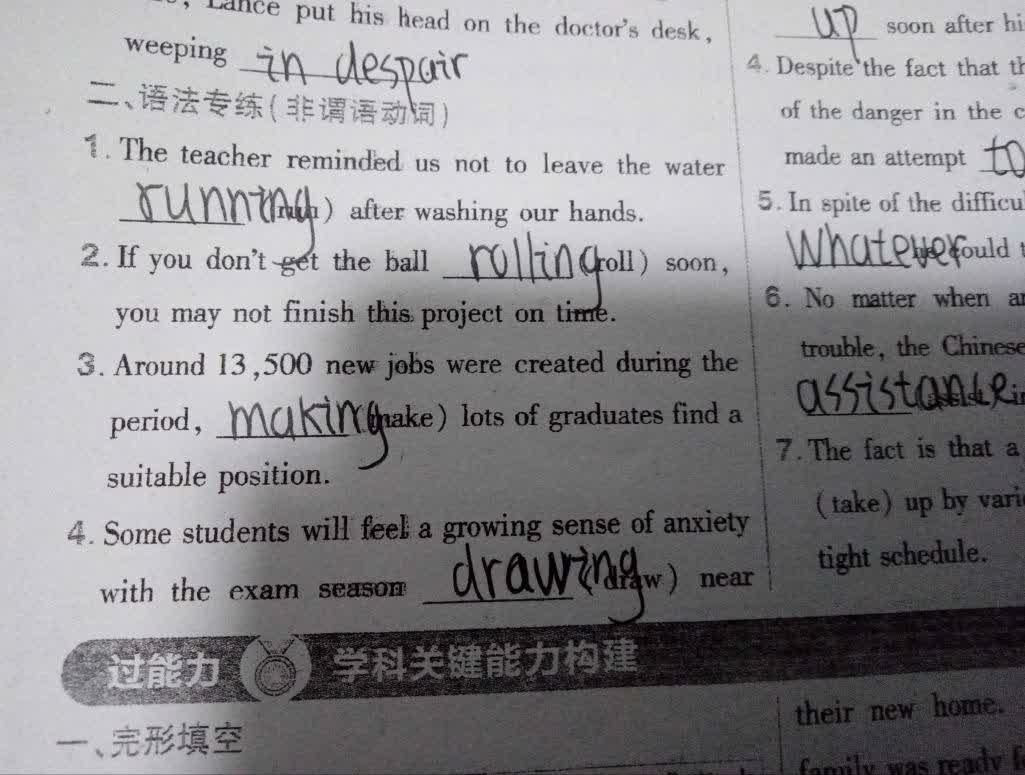 Lance put his head on the doctor's desk,
weeping in despair
二、语法专练(非谓语动词)
1. The teacher reminded us not to leave the water
running (run) after washing our hands.
2. If you don't get the ball rolling (roll) soon,
you may not finish this project on time.
3. Around 13,500 new jobs were created during the
period, making (make) lots of graduates find a
suitable position.
4. Some students will feel a growing sense of anxiety
with the exam season drawing (draw) near
过能力 学科关键能力构建
一、完形填空
up soon after hi
4. Despite the fact that th
of the danger in the c
made an attempt to
5. In spite of the difficu
Whatever could t
6. No matter when an
trouble, the Chinese
assistance in
7. The fact is that a
(take) up by vari
tight schedule.
their new home.
family was ready f